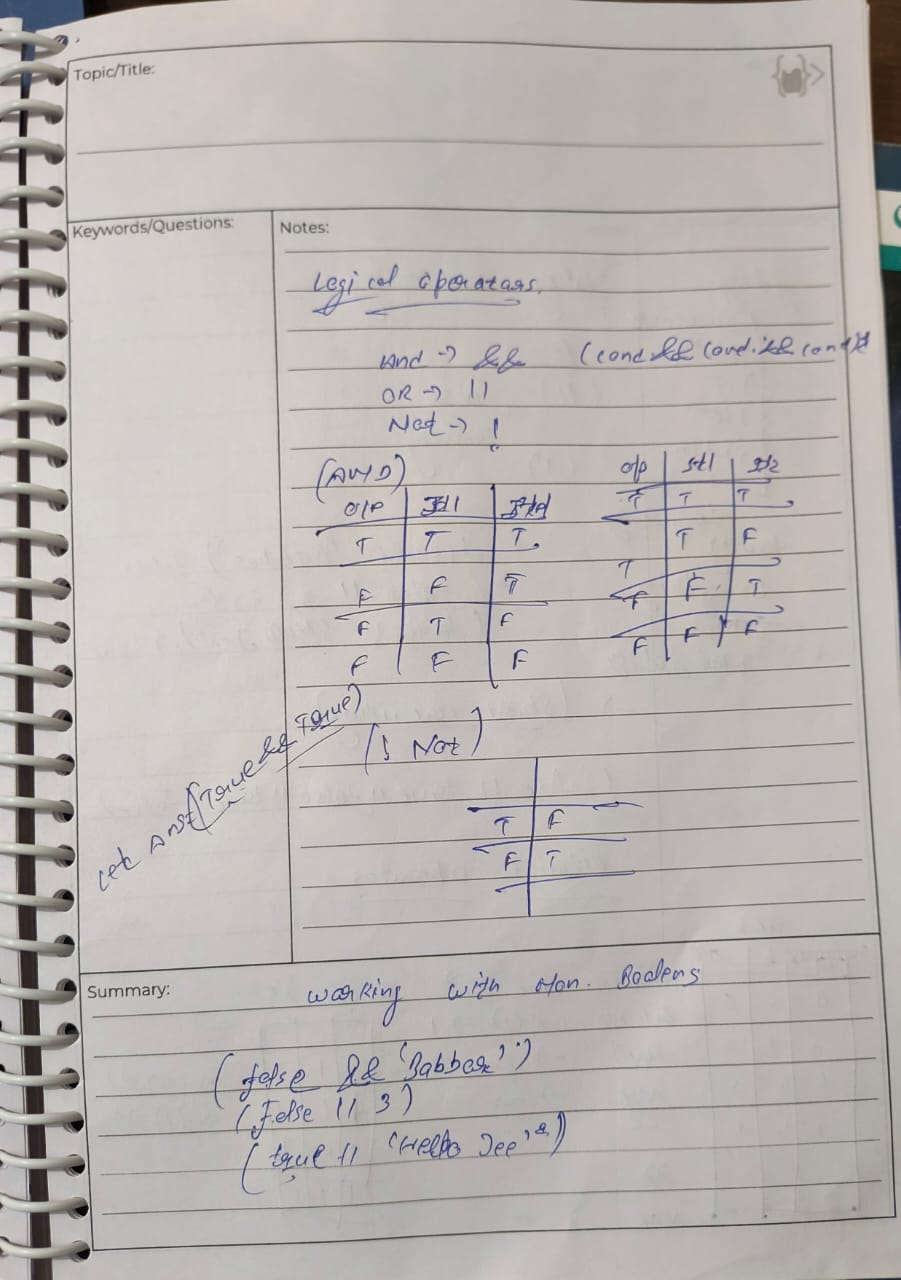 Topic/Title:
Keywords/Questions:
Notes:
Logical operators.
And -> && (cond && cond. && cond)
OR -> ||
Not -> !
(AND)
O/P | St1 | St2
T | T | T
F | F | T
F | T | F
F | F | F
O/P | St1 | St2
T | T | T
T | T | F
F | F | T
F | F | F
let Ans = (True && True)
(! Not)
T | F
F | T
Summary:
working with Non. Boolens
(false && 'Babbar')
(False || 3)
(true || 'Hello Jee')